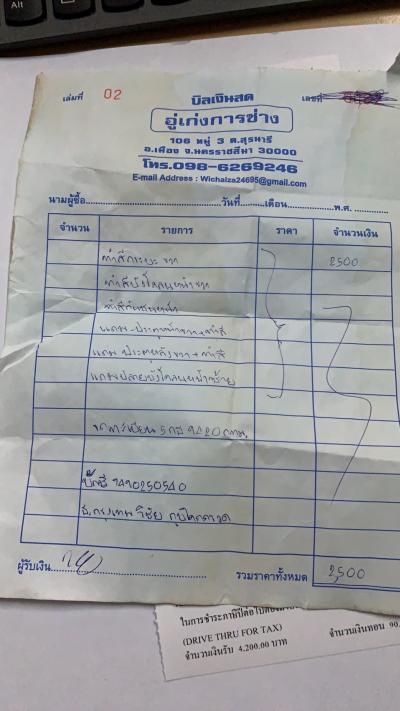 Alt
เล่มที่ 02 บิลเงินสด เลขที่
อู่เก่งการช่าง
106 หมู่ 3 ต.สุรนารี
อ.เมือง จ.นครราชสีมา 30000
โทร.098-6269246
E-mail Address : Wichaiza24695@gmail.com
นามผู้ซื้อ วันที่ เดือน พ.ศ.
จำนวน รายการ ราคา จำนวนเงิน
ทำสีกระบะ ขวา 2500
ทำสีบังโคลนหน้าขวา
ทำสีกันชนหน้า
แถม ประตูหน้าขวา+ทำสี
แถม ประตูหลังขวา+ทำสี
แถมปลายบังโคลนหน้าซ้าย
ทะเบียน 9420 กทม.
บัญชี
ธ.กรุงเทพ วิชัย
ผู้รับเงิน รวมราคาทั้งหมด 2,500
(DRIVE THRU FOR TAX)
จำนวนเงินรับ 4,200.00 บาท จำนวนเงินทอน